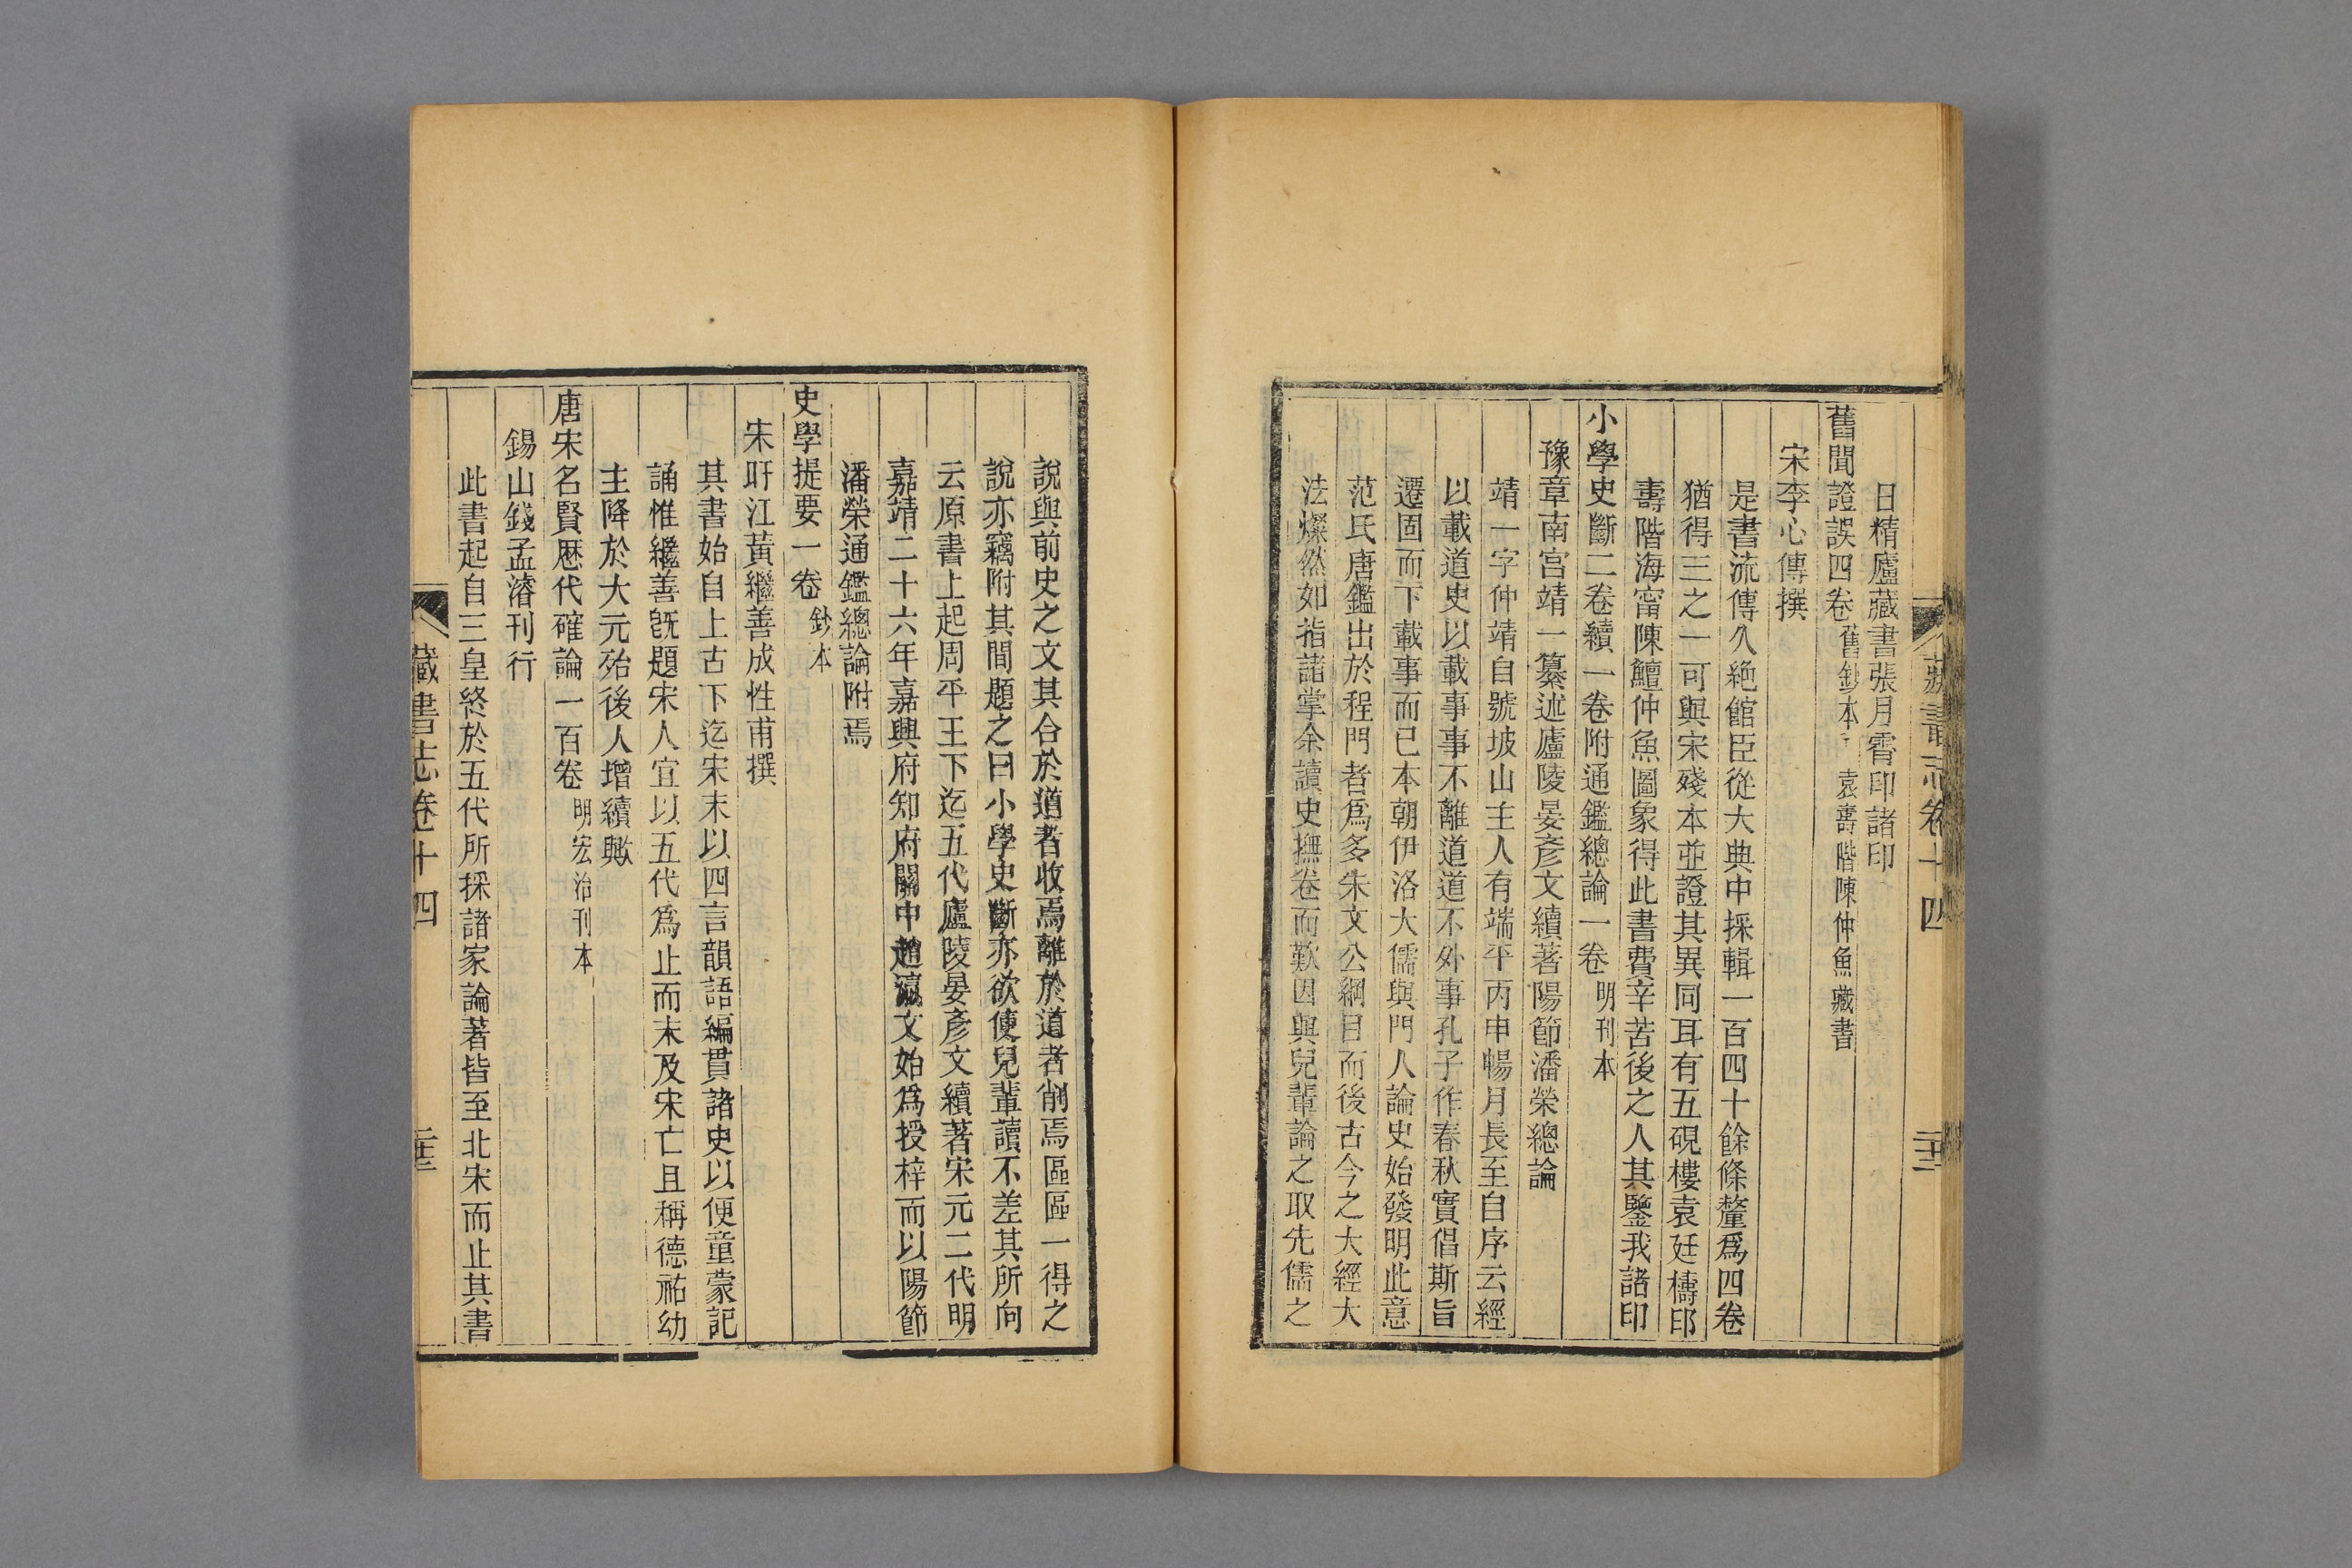 日精廬藏書張月霄印諸印
舊聞證誤四卷 舊鈔本 袁壽階陳仲魚藏書
宋李心傳撰
是書流傳久絶館臣從大典中採輯一百四十餘條釐爲四卷
猶得三之一可與宋殘本並證其異同耳有五硯樓袁廷檮印
壽階海甯陳鱣仲魚圖象得此書費辛苦後之人其鑒我諸印
小學史斷二卷續一卷附通鑑總論一卷 明刊本
豫章南宮靖一纂述廬陵晏彥文續著陽節潘榮總論
靖一字仲靖自號坡山主人有端平丙申暢月長至自序云經
以載道史以載事事不離道道不外事孔子作春秋實倡斯旨
遷固而下載事而已本朝伊洛大儒與門人論史始發明此意
范氏唐鑑出於程門者爲多朱文公綱目而後古今之大經大
法燦然如指諸掌余讀史撫卷而歎因與兒輩論之取先儒之
藏書志卷十四
說與前史之文其合於道者收焉離於道者削焉區區一得之
說亦竊附其間題之曰小學史斷亦欲使兒輩讀不差其所向
云原書上起周平王下迄五代廬陵晏彥文續著宋元二代明
嘉靖二十六年嘉興府知府關中趙瀛文始爲授梓而以陽節
潘榮通鑑總論附焉
史學提要一卷 鈔本
宋旴江黃繼善成性甫撰
其書始自上古下迄宋末以四言韻語編貫諸史以便童蒙記
誦惟繼善旣題宋人宜以五代爲止而末及宋亡且稱德祐幼
主降於大元殆後人增續歟
唐宋名賢歷代確論一百卷 明宏治刊本
錫山錢孟濬刊行
此書起自三皇終於五代所採諸家論著皆至北宋而止其書
藏書志卷十四